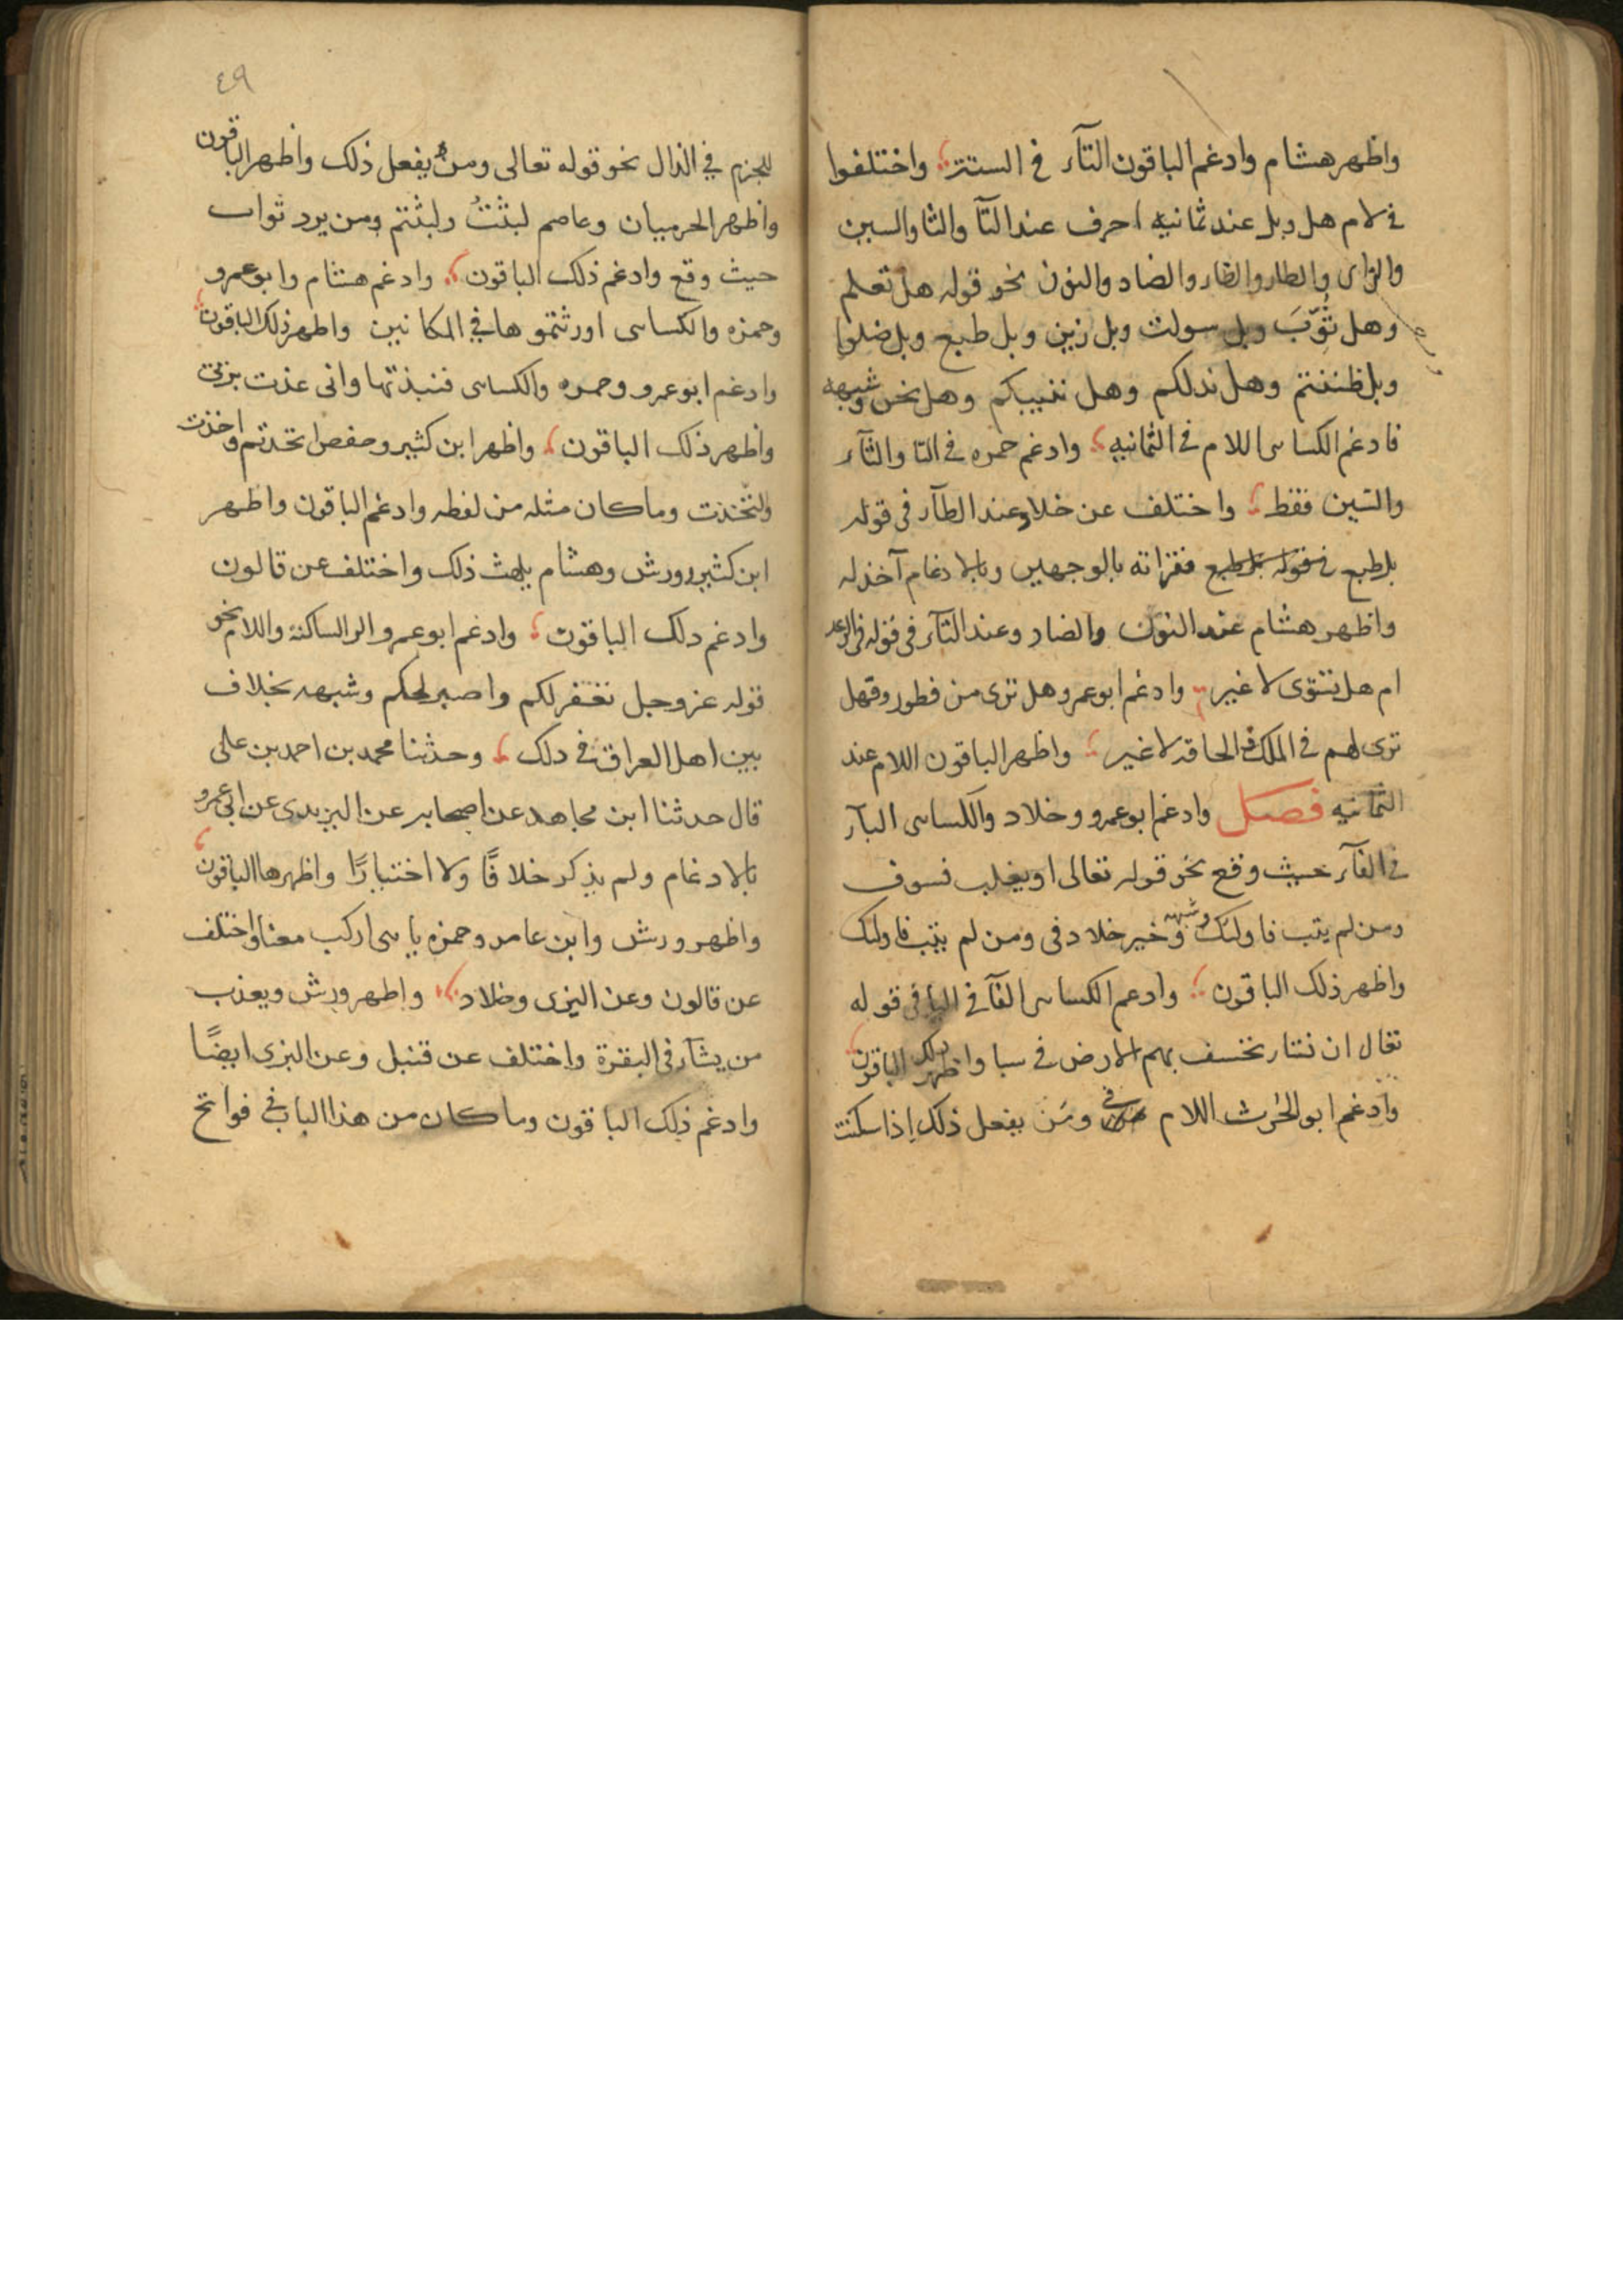 واظهر هشام وادغم الباقون التآء في الستة واختلفوا
في لام هل وبل عند ثمانيه احرف عند التآ والثا والسين
والزاى والطاء والظاء والضاد والنون نحو قوله هل تعلم
وهل ثُوِّبَ وبل سولت وبل زين وبل طبع وبل ضلوا
وبل ظننتم وهل ندلكم وهل ننبيكم وهل نحن وشبهه
فادغم الكساى اللام في الثمانيه وادغم حمزه في التا والثآء
والسين فقط واختلف عن خلاد عند الطآء في قوله
بل طبع فقراته بالوجهين وبالادغام آخذ له
واظهر هشام عند النون والضاد وعند التآء في قوله في الرعد
ام هل تستوى لا غير وادغم ابو عمرو هل ترى من فطور وفهل
ترى لهم في الملك والحاقه لا غير واظهر الباقون اللام عند
الثمانيه فصل وادغم ابو عمرو وخلاد والكساى البآء
في الفآء حيث وقع نحو قوله تعالى او يغلب فسوف
ومن لم يتب فاولئك وشبهه وخير خلاد في ومن لم يتب فاولئك
واظهر ذلك الباقون وادغم الكساى الفآ في البا في قوله
تعالى ان نشا نخسف بهم الارض في سبا واظهر ذلك الباقون
وادغم ابو الحرث اللام في ومن يفعل ذلك اذا سكنت
٤٩
للجزم في الذال نحو قوله تعالى ومن يفعل ذلك واظهر الباقون
واظهر الحرميان وعاصم لبثتُ ولبثتم ومن يرد ثواب
حيث وقع وادغم ذلك الباقون وادغم هشام وابو عمرو
وحمزه والكساى اورثتموها في المكانين واظهر ذلك الباقون
وادغم ابو عمرو وحمزه والكساى فنبذتها وانى عذت بربى
واظهر ذلك الباقون واظهر ابن كثير وحفص اتخذتم واخذت
ولتخذت وما كان مثله من لفظه وادغم الباقون واظهر
ابن كثير وورش وهشام يلهث ذلك واختلف عن قالون
وادغم ذلك الباقون وادغم ابو عمرو الرا الساكنة واللام نحو
قوله عز وجل نغفر لكم واصبر لحكم وشبهه بخلاف
بين اهل العراق في ذلك وحدثنا محمد بن احمد بن على
قال حدثنا ابن مجاهد عن اصحابه عن اليزيدى عن ابى عمرو
بالادغام ولم يذكر خلافًا ولا اختيارًا واظهرها الباقون
واظهر ورش وابن عامر وحمزه يابنى اركب معنا واختلف
عن قالون وعن البزى وخلاد واظهر ورش ويعذب
من يشآء في البقرة واختلف عن قنبل وعن البزى ايضًا
وادغم ذلك الباقون وما كان من هذا الباب في فواتح